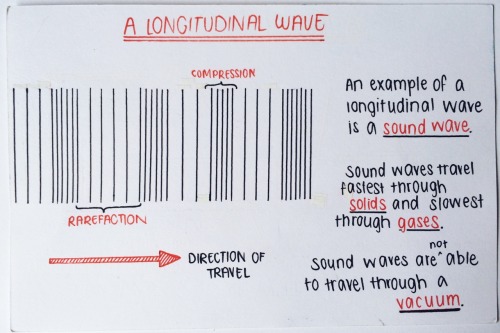 A LONGITUDINAL WAVE
COMPRESSION
RAREFACTION
DIRECTION OF
TRAVEL
An example of a
longitudinal wave
is a sound wave.
sound waves travel
fastest through
solids and slowest
through gases.
not
sound waves are ^ able
to travel through a
vacuum.